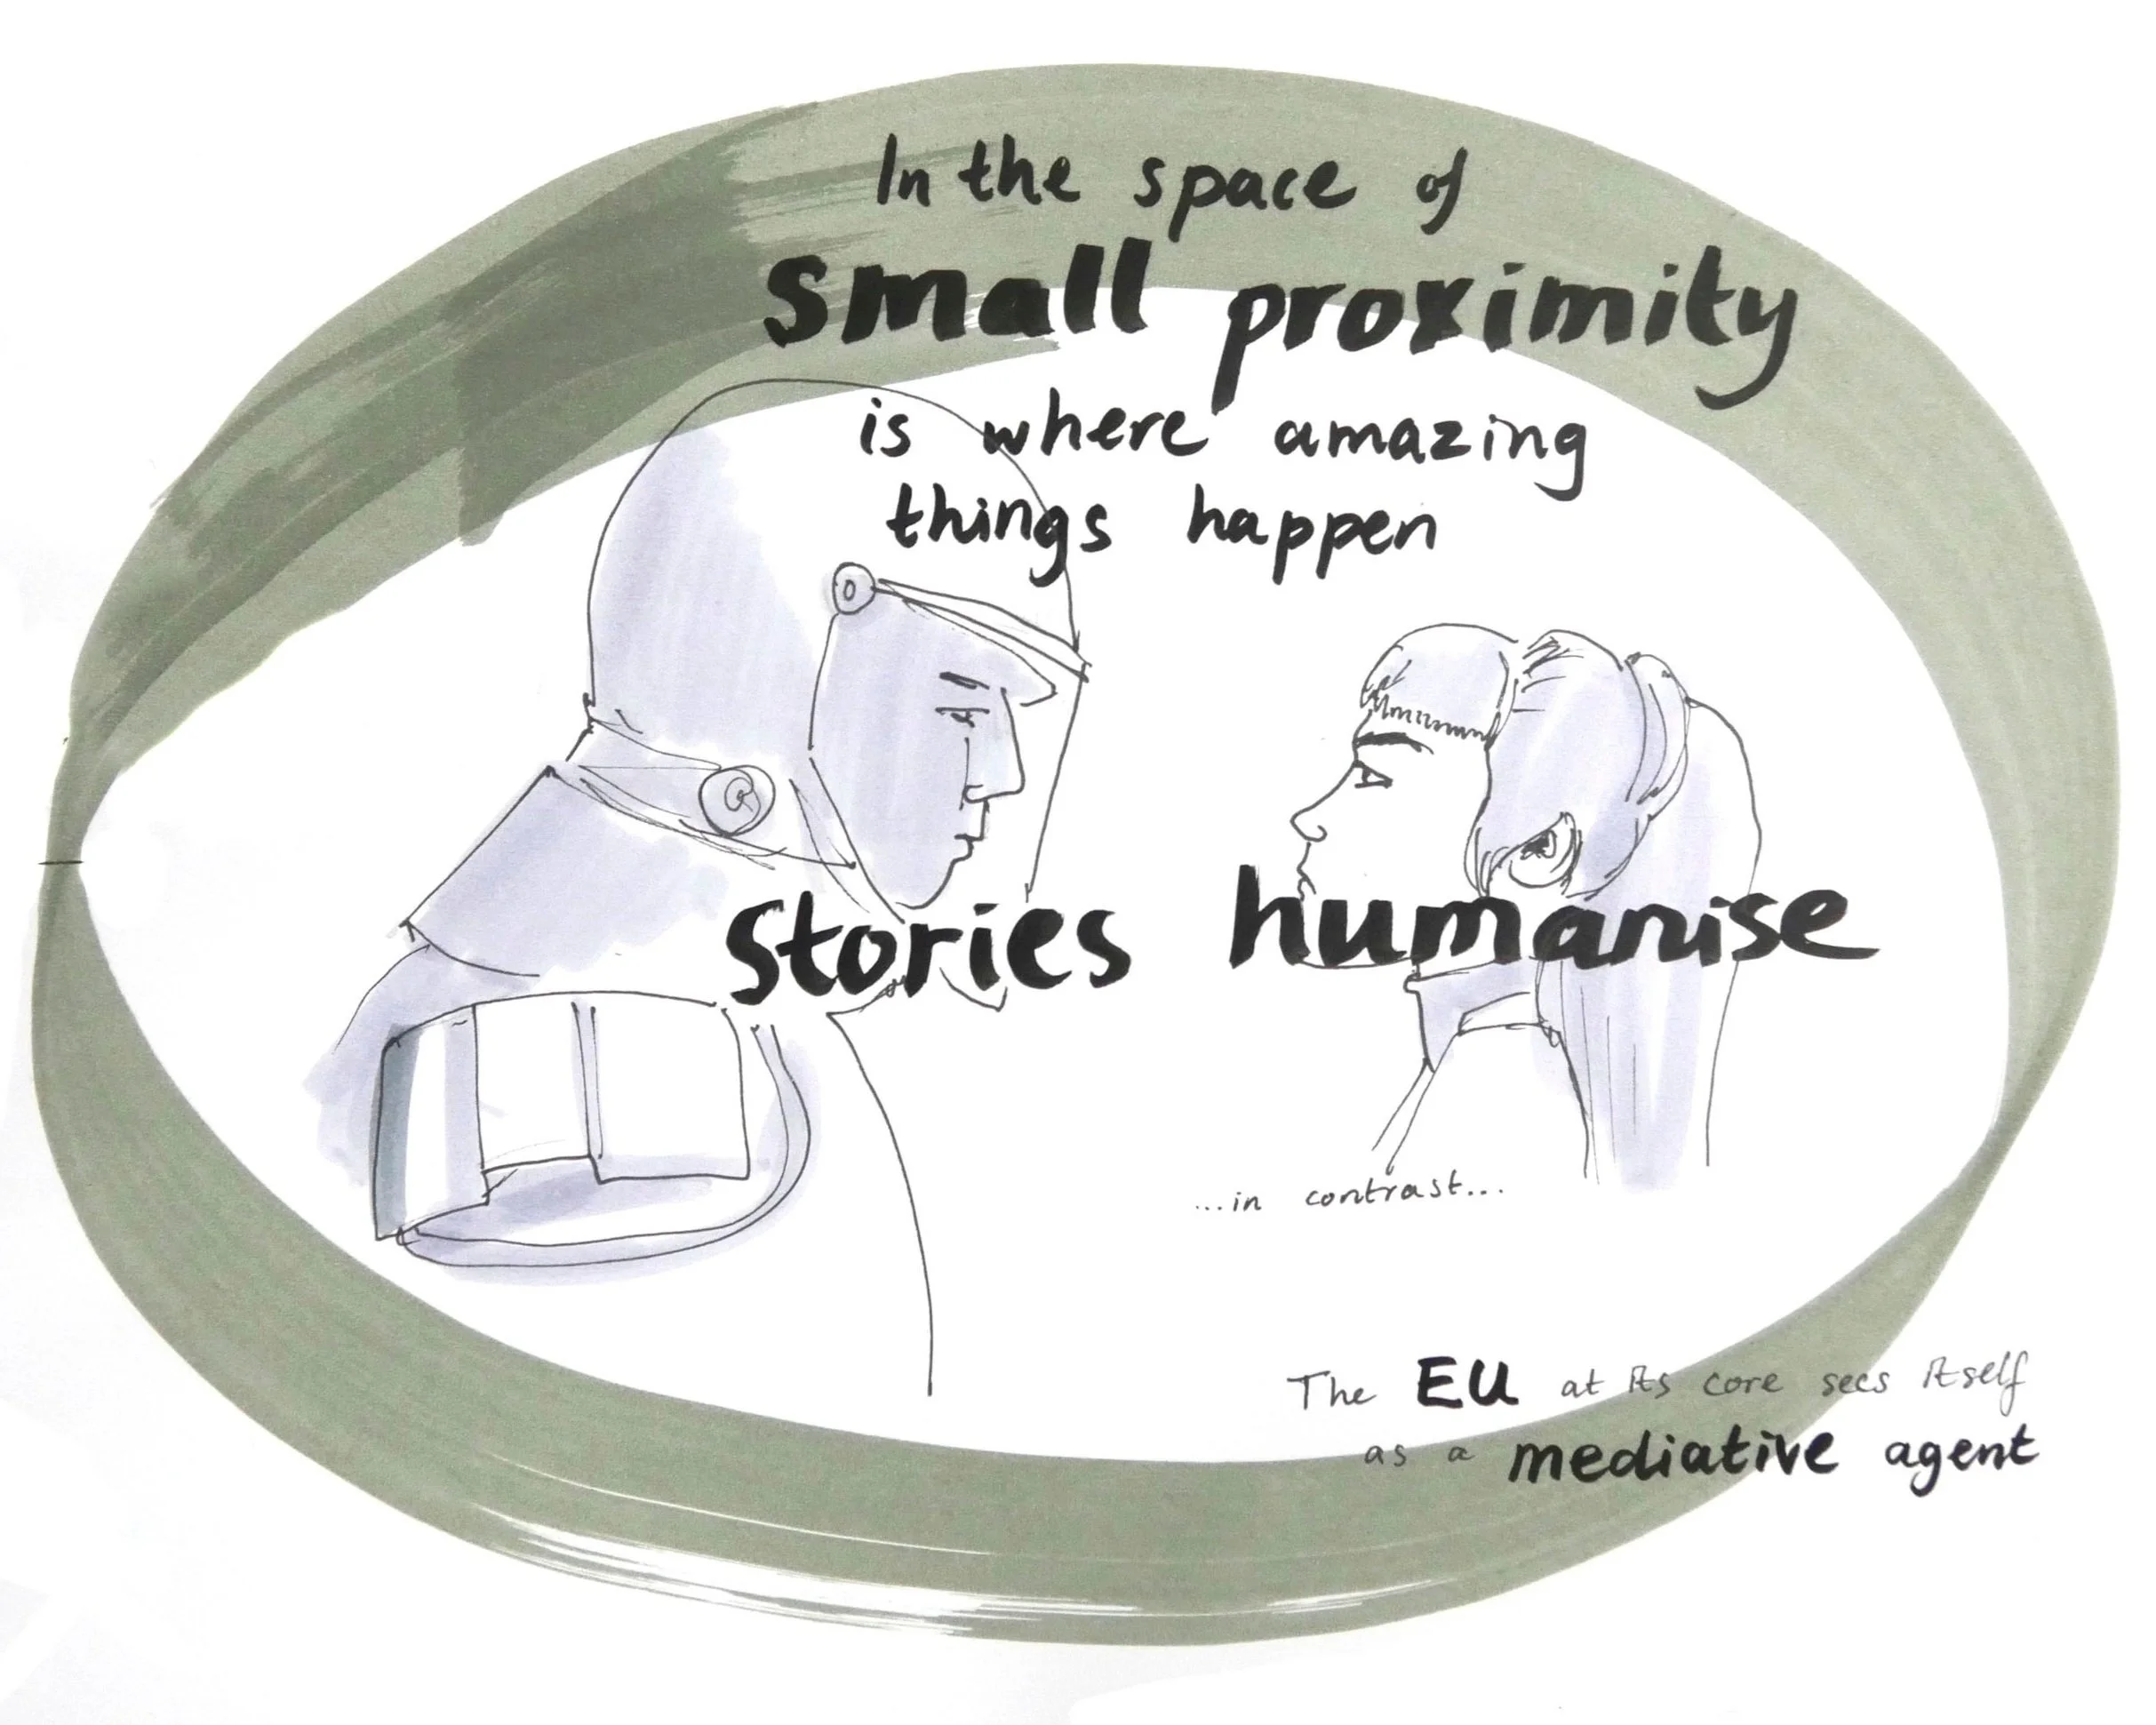 In the space of
small proximity
is where amazing
things happen
stories humanise
...in contrast...
The EU at its core sees itself
as a mediative agent